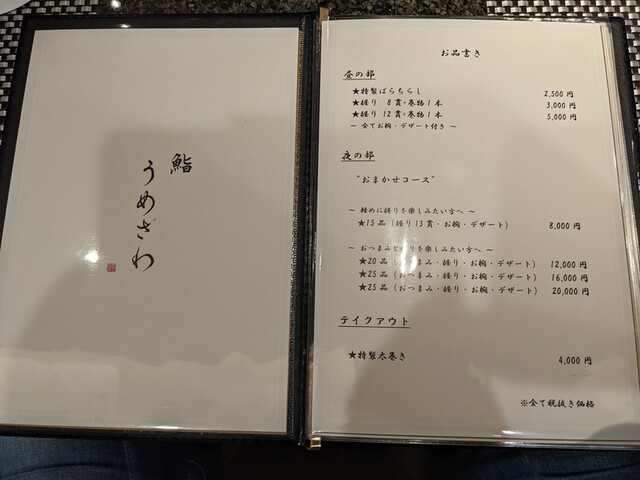 鮨
うめざわ
お品書き
昼の部
★特製ばらちらし 2,500 円
★握り 8 貫+巻物 1 本 3,000 円
★握り 12 貫+巻物 1 本 5,000 円
～ 全てお椀・デザート付き ～
夜の部
"おまかせコース"
～ 軽めに握りを楽しみたい方へ ～
★15 品 (握り 13 貫・お椀・デザート) 8,000 円
～ おつまみと握りを楽しみたい方へ ～
★20 品 (おつまみ・握り・お椀・デザート) 12,000 円
★25 品 (おつまみ・握り・お椀・デザート) 16,000 円
★25 品 (おつまみ・握り・お椀・デザート) 20,000 円
テイクアウト
★特製太巻き 4,000 円
※全て税抜き価格